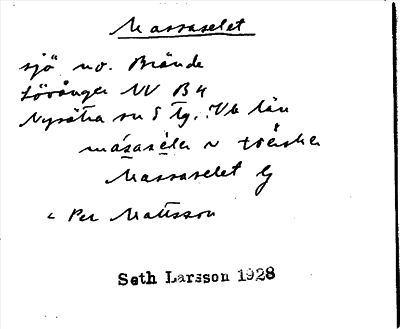 Massaselet
sjö no. Brände
Lövånger NV B 4
Nysätra sn S tg. Vb län
Massaselet G
Per Mattsson
Seth Larsson 1928